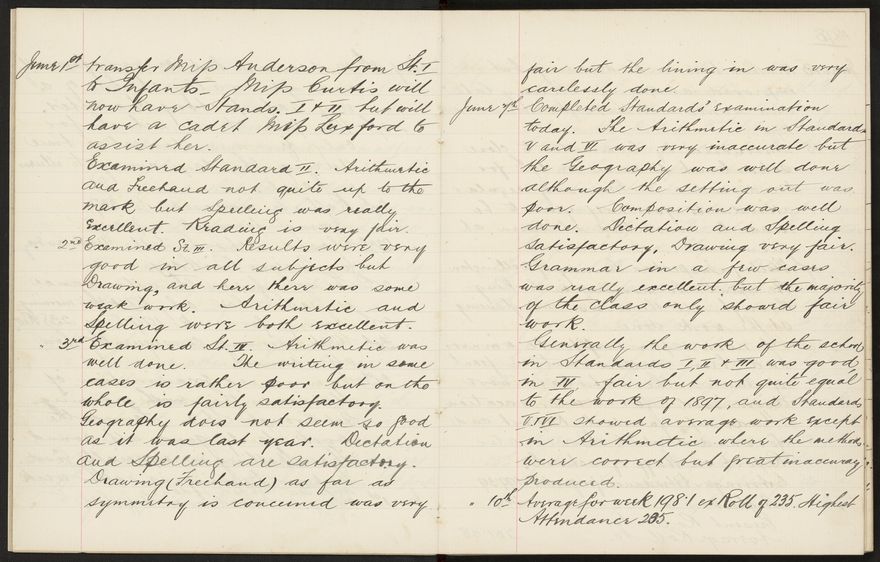 June 1st transfer Miss Anderson from St. I
to Infants. Miss Curtis will
now have Stands. I & II but will
have a cadet Miss Luxford to
assist her.
Examined Standard II. Arithmetic
and Freehand not quite up to the
mark but Spelling was really
Excellent. Reading is very fair.
2nd Examined St. III. Results were very
good in all subjects but
Drawing, and here there was some
weak work. Arithmetic and
Spelling were both excellent.
" 3rd Examined St. IV. Arithmetic was
well done. The writing in some
cases is rather poor but on the
whole is fairly satisfactory.
Geography does not seem so good
as it was last year. Dictation
and Spelling are satisfactory.
Drawing (Freehand) as far as
symmetry is concerned was very
fair but the lining in was very
carelessly done.
June 7th Completed Standards' Examination
today. The Arithmetic in Standards
V and VI was very inaccurate but
the Geography was well done
although the setting out was
poor. Composition was well
done. Dictation and Spelling
satisfactory, Drawing very fair.
Grammar in a few cases
was really excellent, but the majority
of the class only showed fair
work.
Generally the work of the school
in Standards I, II & III was good
in IV fair but not quite equal
to the work of 1897, and Standards
V & VI showed average work except
in Arithmetic where the methods
were correct but great inaccuracy
produced.
" 10th Average for week 198.1 ex Roll of 235. Highest
Attendance 205.